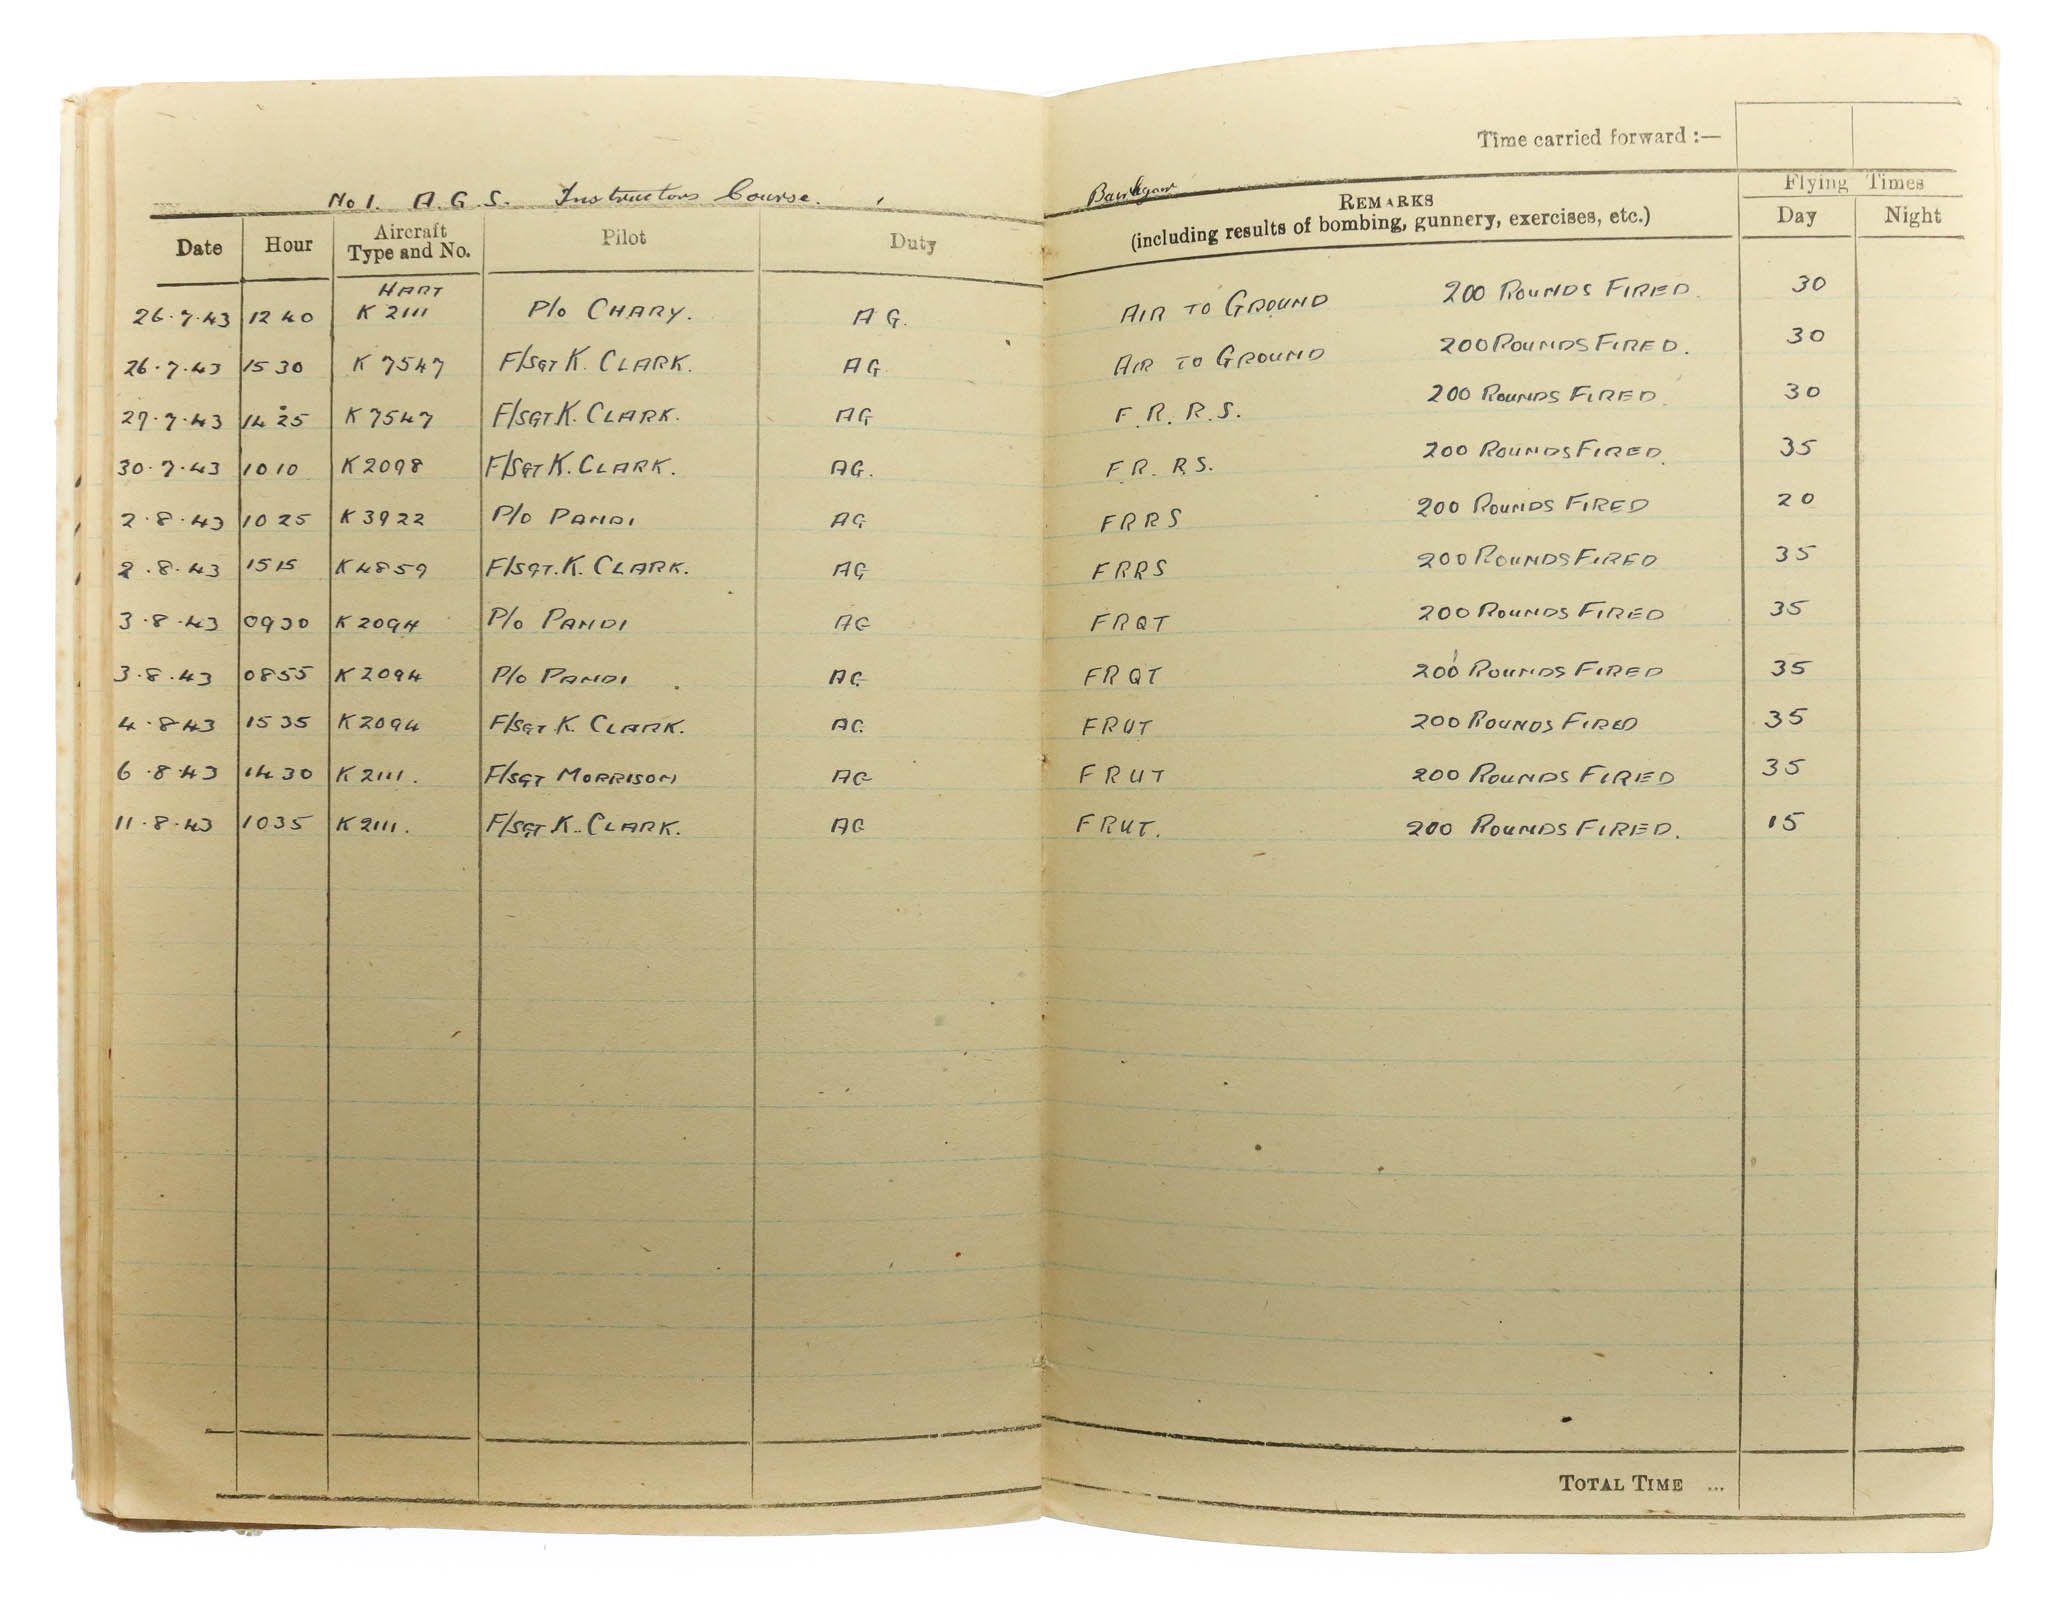 Time carried forward :—
No 1. A. G. S. Instructors Course.
Date Hour Aircraft Type and No. Pilot Duty REMARKS (including results of bombing, gunnery, exercises, etc.) Flying Times Day Night
HART
26.7.43 1240 K 2111 P/O CHARY. AG. AIR TO GROUND 200 ROUNDS FIRED. 30
26.7.43 1530 K 7547 F/SGT K. CLARK. AG AIR TO GROUND 200 ROUNDS FIRED. 30
27.7.43 1425 K 7547 F/SGT K. CLARK. AG F.R.R.S. 200 ROUNDS FIRED. 30
30.7.43 1010 K 2098 F/SGT K. CLARK. AG. F.R.R.S. 200 ROUNDS FIRED. 35
2.8.43 1025 K 3922 P/O PANDI AG FRRS 200 ROUNDS FIRED 20
2.8.43 1515 K 4859 F/SGT. K. CLARK. AG FRRS 200 ROUNDS FIRED 35
3.8.43 0930 K 2094 P/O PANDI AG FRQT 200 ROUNDS FIRED 35
3.8.43 0855 K 2094 P/O PANDI AG FRQT 200 ROUNDS FIRED 35
4.8.43 1535 K 2094 F/SGT K. CLARK. AG FRUT 200 ROUNDS FIRED 35
6.8.43 1430 K 2111. F/SGT MORRISON AG FRUT 200 ROUNDS FIRED 35
11.8.43 1035 K 2111. F/SGT K. CLARK. AG FRUT. 200 ROUNDS FIRED. 15
TOTAL TIME ...